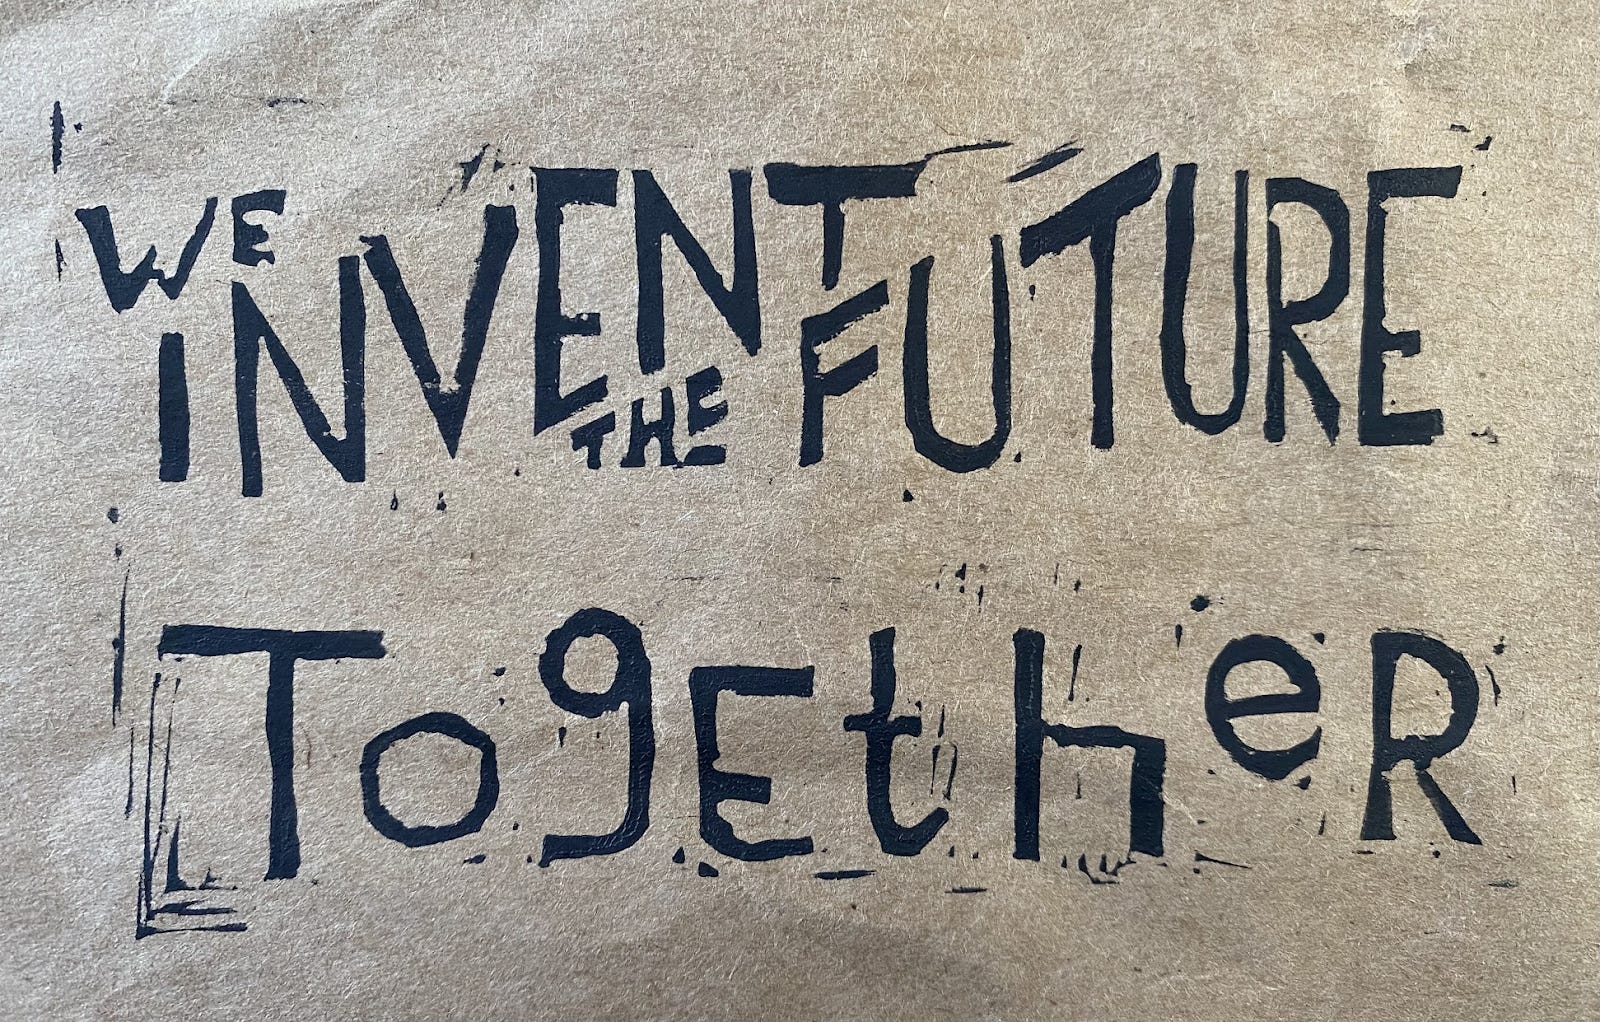 WE INVENT THE FUTURE
TogEtheR